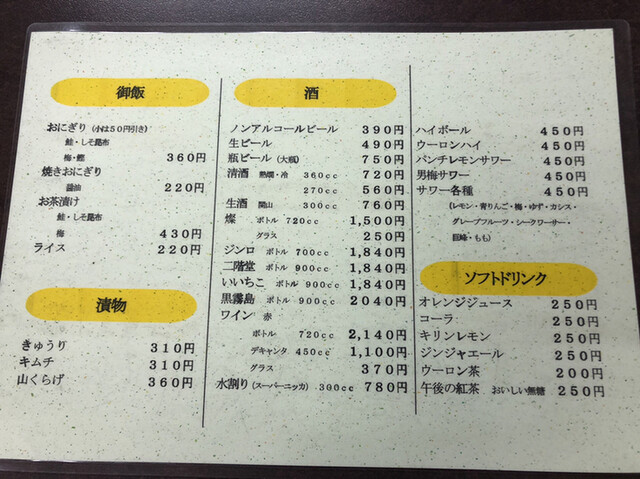 御飯
おにぎり (小は50円引き)
鮭・しそ昆布
梅・鰹 360円
焼きおにぎり
醤油 220円
お茶漬け
鮭・しそ昆布
梅 430円
ライス 220円
漬物
きゅうり 310円
キムチ 310円
山くらげ 360円
酒
ノンアルコールビール 390円
生ビール 490円
瓶ビール (大瓶) 750円
清酒 熱燗・冷 360cc 720円
270cc 560円
生酒 開山 300cc 760円
燦 ボトル 720cc 1,500円
グラス 250円
ジンロ ボトル 700cc 1,840円
二階堂 ボトル 900cc 1,840円
いいちこ ボトル 900cc 1,840円
黒霧島 ボトル 900cc 2040円
ワイン 赤
ボトル 720cc 2,140円
デキャンタ 450cc 1,100円
グラス 370円
水割り (スーパーニッカ) 300cc 780円
ハイボール 450円
ウーロンハイ 450円
パンチレモンサワー 450円
男梅サワー 450円
サワー各種 450円
(レモン・青りんご・梅・ゆず・カシス・
グレープフルーツ・シークワーサー・
巨峰・もも)
ソフトドリンク
オレンジジュース 250円
コーラ 250円
キリンレモン 250円
ジンジャエール 250円
ウーロン茶 200円
午後の紅茶 おいしい無糖 250円